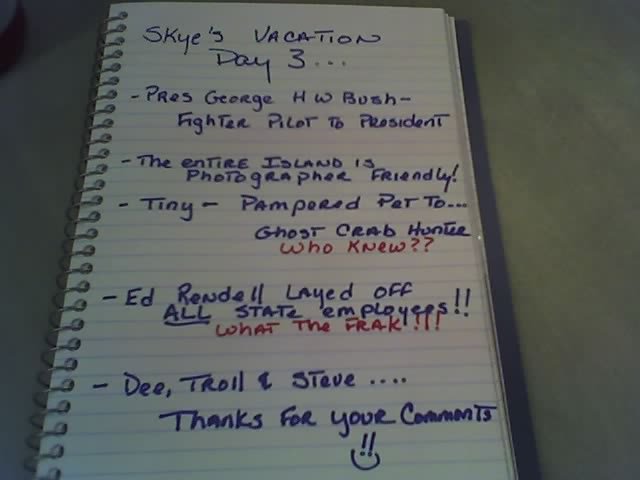 Skye's Vacation
Day 3...
- Pres George H W Bush -
Fighter Pilot to President
- The entire Island is
Photographer Friendly!
- Tiny - Pampered Pet To...
Ghost Crab Hunter
Who Knew??
- Ed Rendell Layed off
ALL State employees!!
What The Frak!!!
- Dee, Troll & Steve ....
Thanks for your Comments
!!